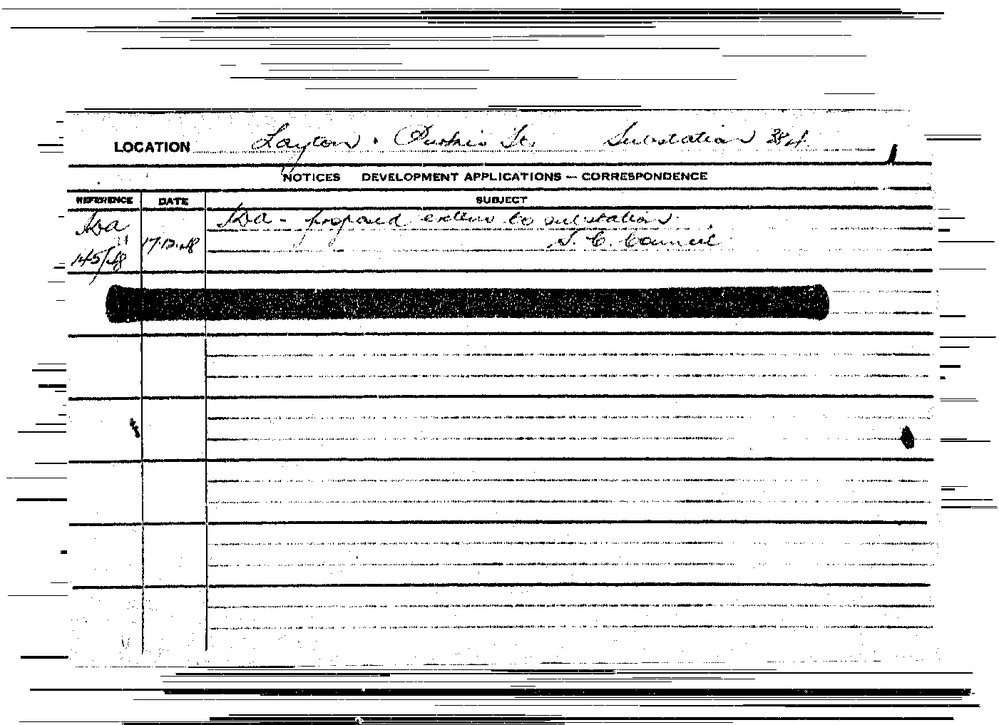 LOCATION Layton & St. Substation 384.
NOTICES DEVELOPMENT APPLICATIONS — CORRESPONDENCE
REFERENCE DATE SUBJECT
Ida 17.12.48 Ida - proposed extens to substation.
145/48 S. C. Council